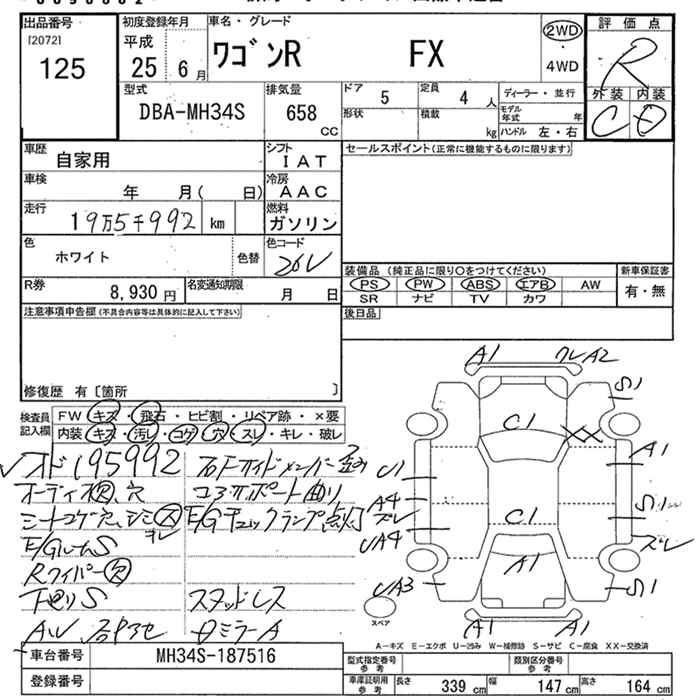 出品番号
[2072]
125
初度登録年月
平成
25 6 月
車名・グレード
ワゴンR FX
2WD
・
4WD
評価点
R
外装 内装
C D
型式
DBA-MH34S
排気量
658
CC
ドア 5
定員 4 人
形状
積載 kg
ディーラー・並行
モデル年式 年
ハンドル 左・右
車歴
自家用
シフト
IAT
車検
年 月( 日)
冷房
AAC
走行
19万5千992 km
燃料
ガソリン
色
ホワイト
色替
色コード
26U
R券
8,930 円
名変通知期限
月 日
セールスポイント(正常に機能するものに限ります)
装備品(純正品に限り○をつけてください)
PS PW ABS エアB AW
SR ナビ TV カワ
新車保証書
有・無
後日品
注意事項申告欄(不具合内容等は具体的に記入して下さい)
修復歴 有〔箇所 〕
検査員
記入欄
FW キズ・飛石・ヒビ割・リペア跡・×要
内装 キズ・汚レ・コゲ・穴・スレ・キレ・破レ
オド195992
オーディオ欠、穴
シートコゲ穴、シミ
ヨレ
E/Gチェックランプ点灯
Rワイパー欠
下廻りS
スタッドレス
A1
A2
S1
C1
XX
A1
U1
A4
ズレ
C1
S1
UA4
ズレ
A1
UA3
S1
A1
A1
スペア
A-キズ E-エクボ U-凹み W-補修跡 S-サビ C-腐食 XX-交換済
車台番号
MH34S-187516
登録番号
型式指定番号
参考
類別区分番号
参考
車庫証明用
参考
長さ 339 cm 幅 147 cm 高さ 164 cm